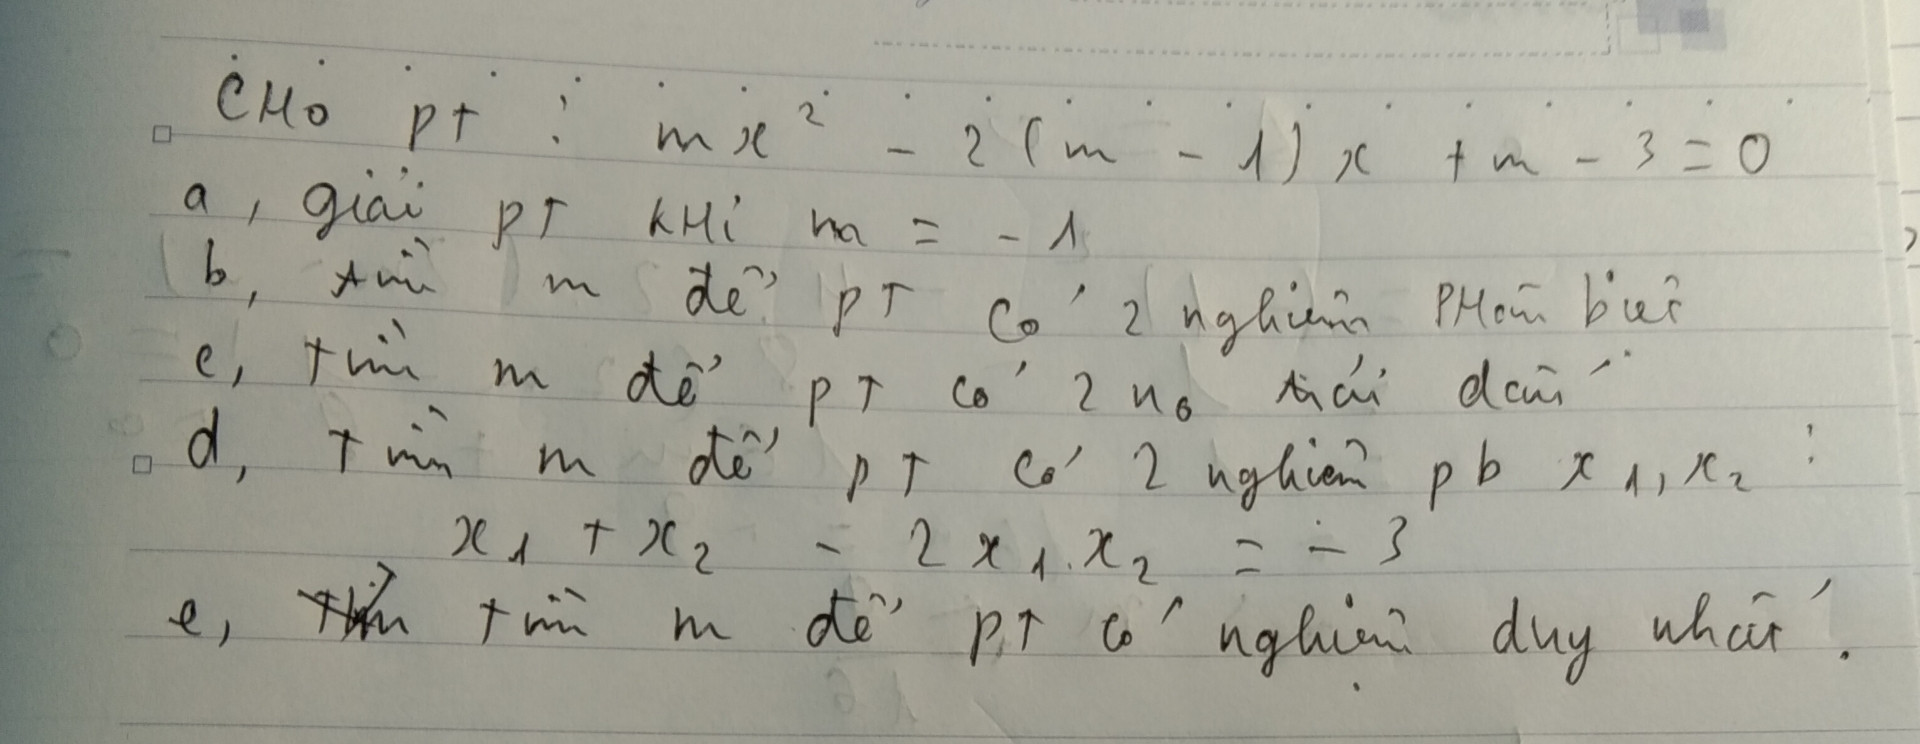 CHO pT : mx² - 2(m - 1)x + m - 3 = 0
a, giải pT KHi m = -1
b, tìm m để pT có 2 nghiệm PHân biệt
c, Tìm m để pT có 2 no trái dấu
d, Tìm m để pT có 2 nghiệm pb x₁, x₂ :
x₁ + x₂ - 2x₁.x₂ = -3
e, tìm m để pT có nghiệm duy nhất.